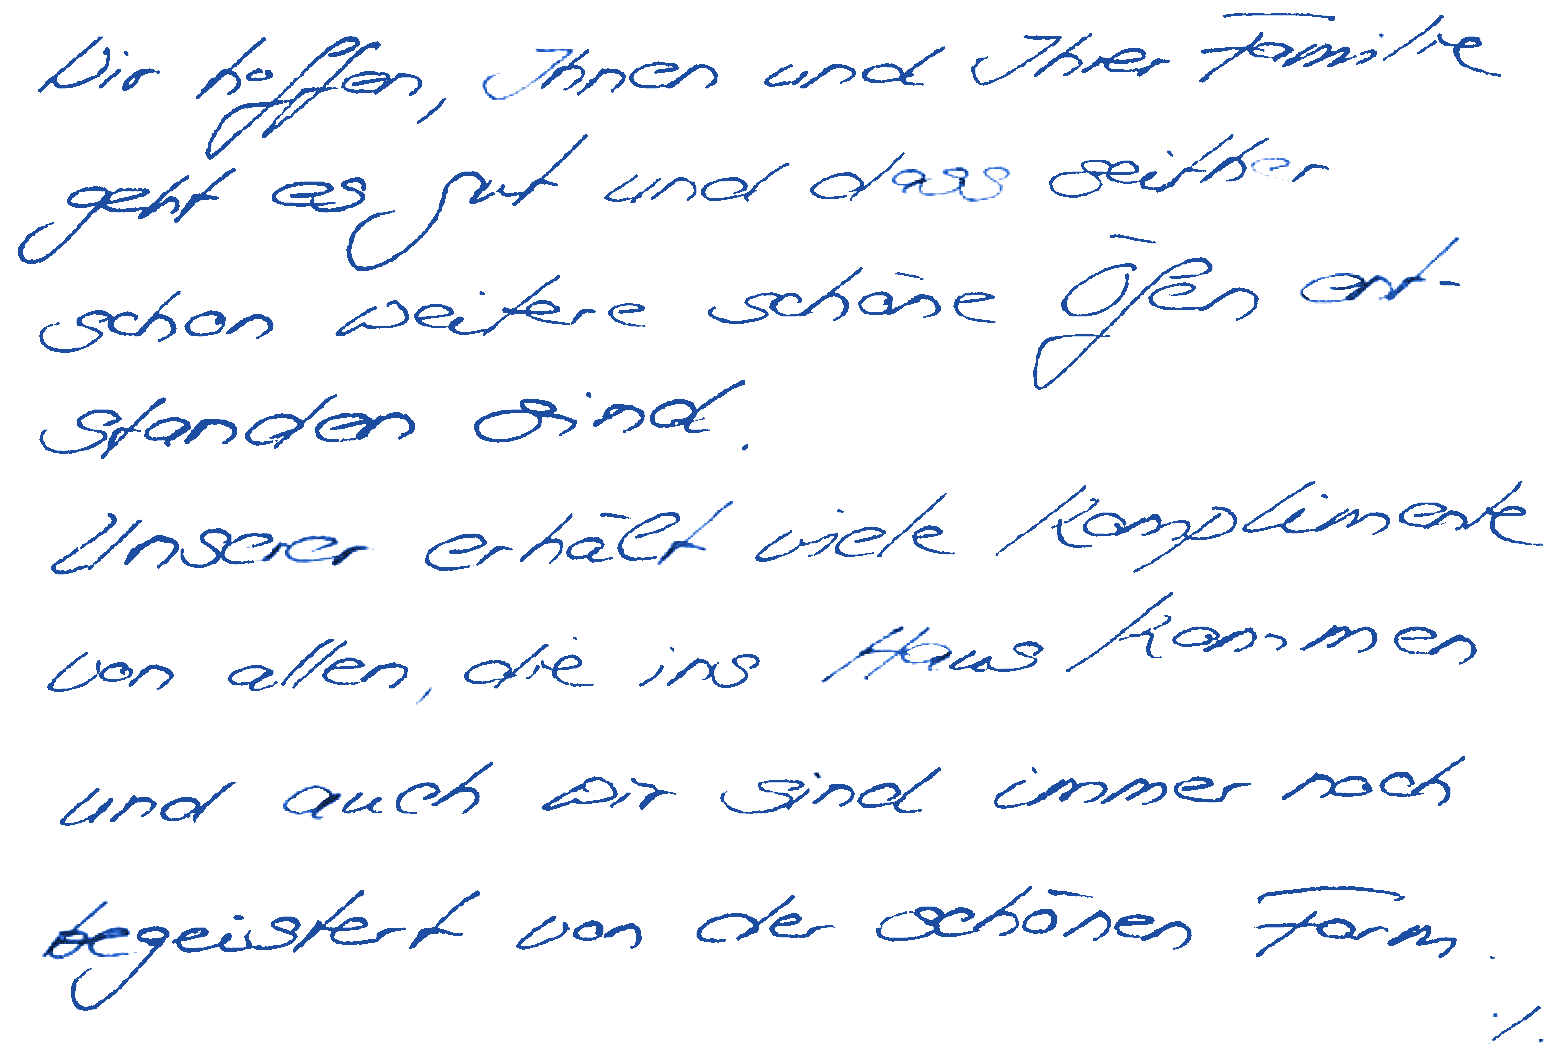 Wir hoffen, Ihnen und Ihrer Familie
geht es gut und dass seither
schon weitere schöne Öfen ent-
standen sind.
Unserer erhält viele Komplimente
von allen, die ins Haus kommen
und auch wir sind immer noch
begeistert von der schönen Form.
./.